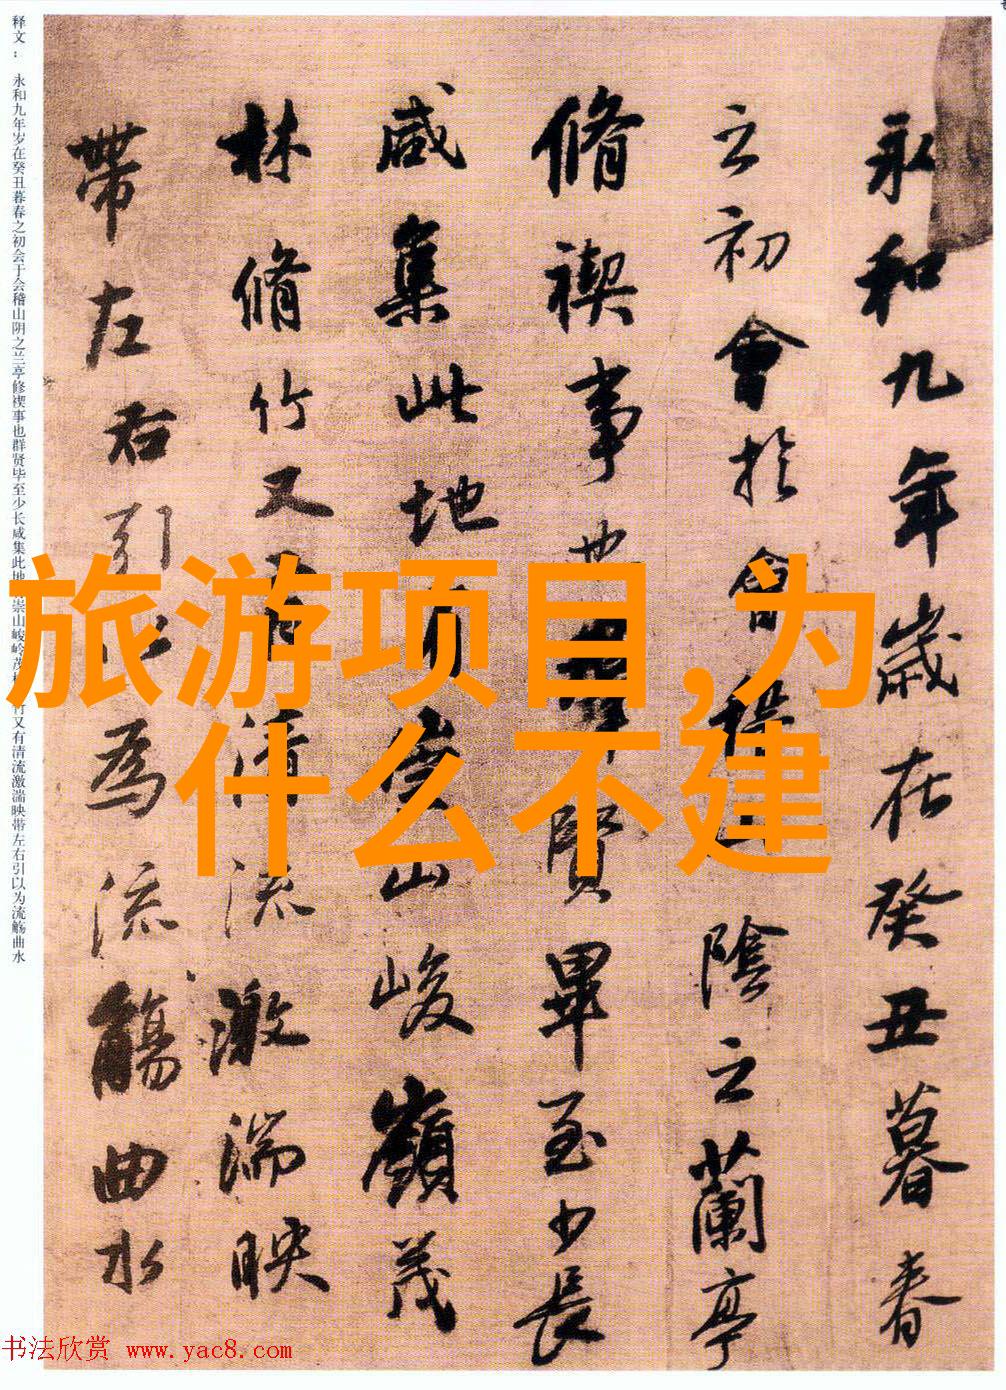 永和九年歲在癸丑暮春
之初會於會稽山陰之蘭亭
脩禊事也羣賢畢至少長
咸集此地有崇山峻嶺茂
林脩竹又有清流激湍映
帶左右引以為流觴曲水
释文： 永和九年岁在癸丑暮春之初会于会稽山阴之兰亭修禊事也群贤毕至少长咸集此地崇山峻岭茂林竹又有清流激湍映带左右引以为流觞曲水
旅游项目,为
什么不建
书法欣赏 www.yac8.com